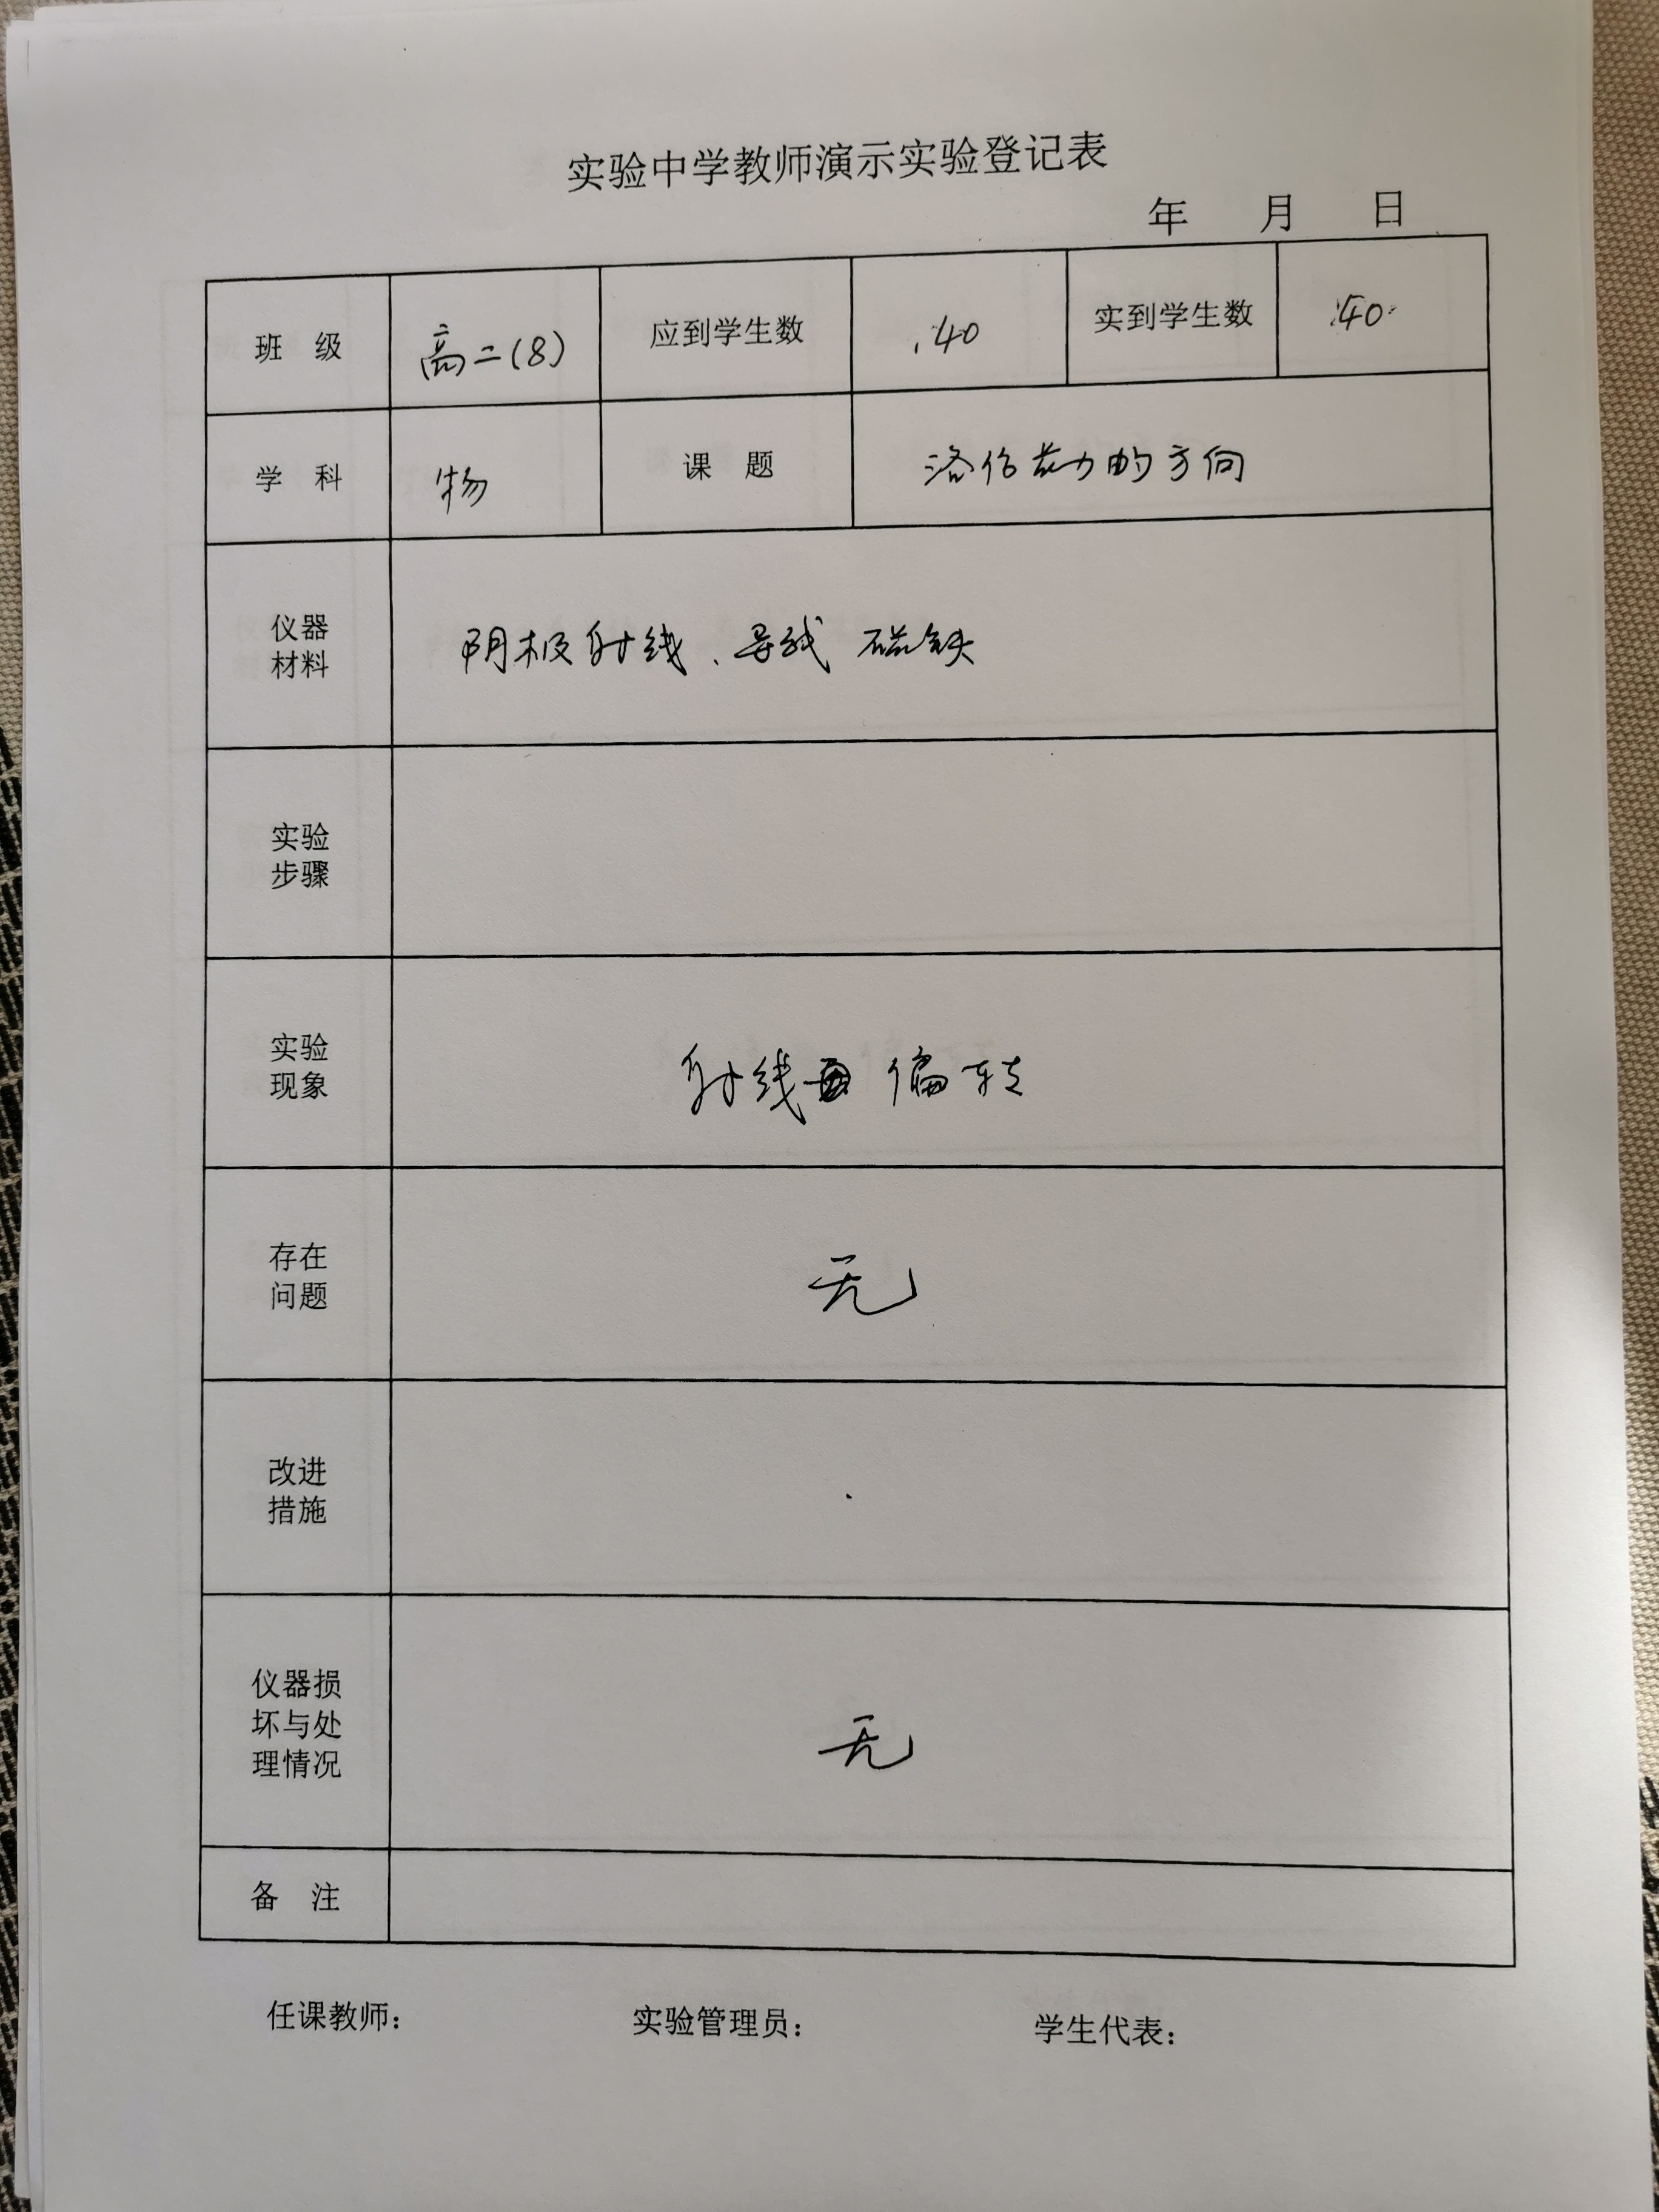 实验中学教师演示实验登记表
年 月 日
班 级 高二(8) 应到学生数 40 实到学生数 40
学 科 物 课 题 洛伦兹力的方向
仪器
材料
阴极射线、导线 磁铁
实验
步骤
实验
现象
射线 偏转
存在
问题
无
改进
措施
仪器损
坏与处
理情况
无
备 注
任课教师: 实验管理员: 学生代表: